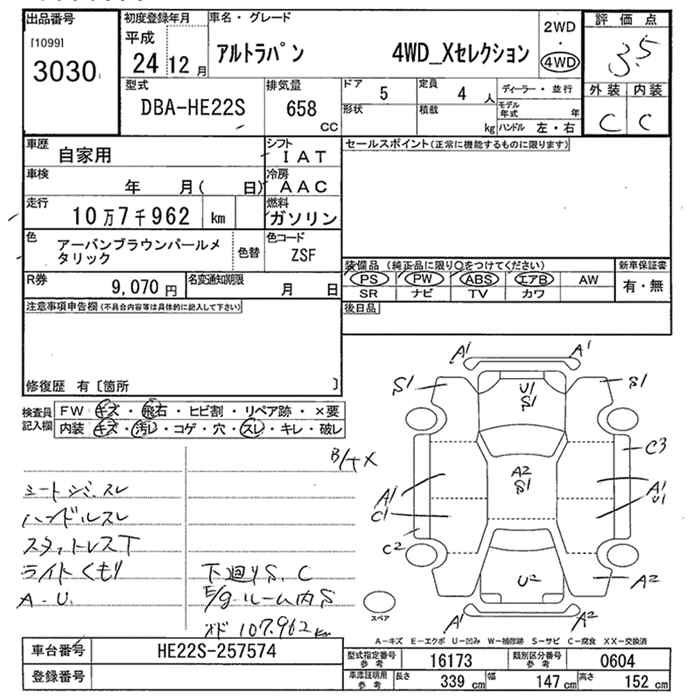 出品番号
[1099]
3030
初度登録年月
平成
24 12 月
車名・グレード
アルトラパン 4WD_Xセレクション
2WD
・
4WD
評価点
3.5
外装 内装
C C
型式
DBA-HE22S
排気量
658
CC
ドア 5
形状
定員 4 人
積載 kg
ディーラー・並行
モデル年式 年
ハンドル 左・右
車歴
自家用
シフト
IAT
車検
年 月( 日)
冷房
AAC
走行
10万7千962 km
燃料
ガソリン
色
アーバンブラウンパールメタリック
色替
色コード
ZSF
R券
9,070 円
名変通知期限
月 日
セールスポイント(正常に機能するものに限ります)
装備品(純正品に限り○をつけてください)
PS PW ABS エアB AW
SR ナビ TV カワ
新車保証書
有・無
後日品
注意事項申告欄(不具合内容等は具体的に記入して下さい)
修復歴 有〔箇所 〕
検査員記入欄
FW キズ・飛石・ヒビ割・リペア跡・×要
内装 キズ・汚レ・コゲ・穴・スレ・キレ・破レ
シートシミ、スレ
ハンドルスレ
スタットレスT
ライトくもり
A-U.
下廻りS、C
E/gルーム内S
オド 107,962km
A1 A1
S1 S1
U1
S1
C3
A2
S1
A1 A1
U1
C1
C2
U2
A2
A1 A2
スペア
A-キズ E-エクボ U-凹み W-補修跡 S-サビ C-腐食 XX-交換済
車台番号
HE22S-257574
登録番号
型式指定番号 参考
16173
類別区分番号 参考
0604
車庫証明用 参考
長さ 339 cm
幅 147 cm
高さ 152 cm